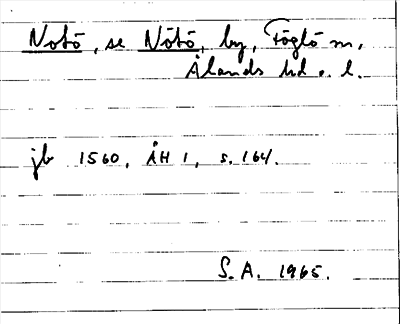 Notö, se Nötö, by, Föglö sn,
Ålands hd o. l.
jb 1560, ÅH 1, s. 164.
S.A. 1965.